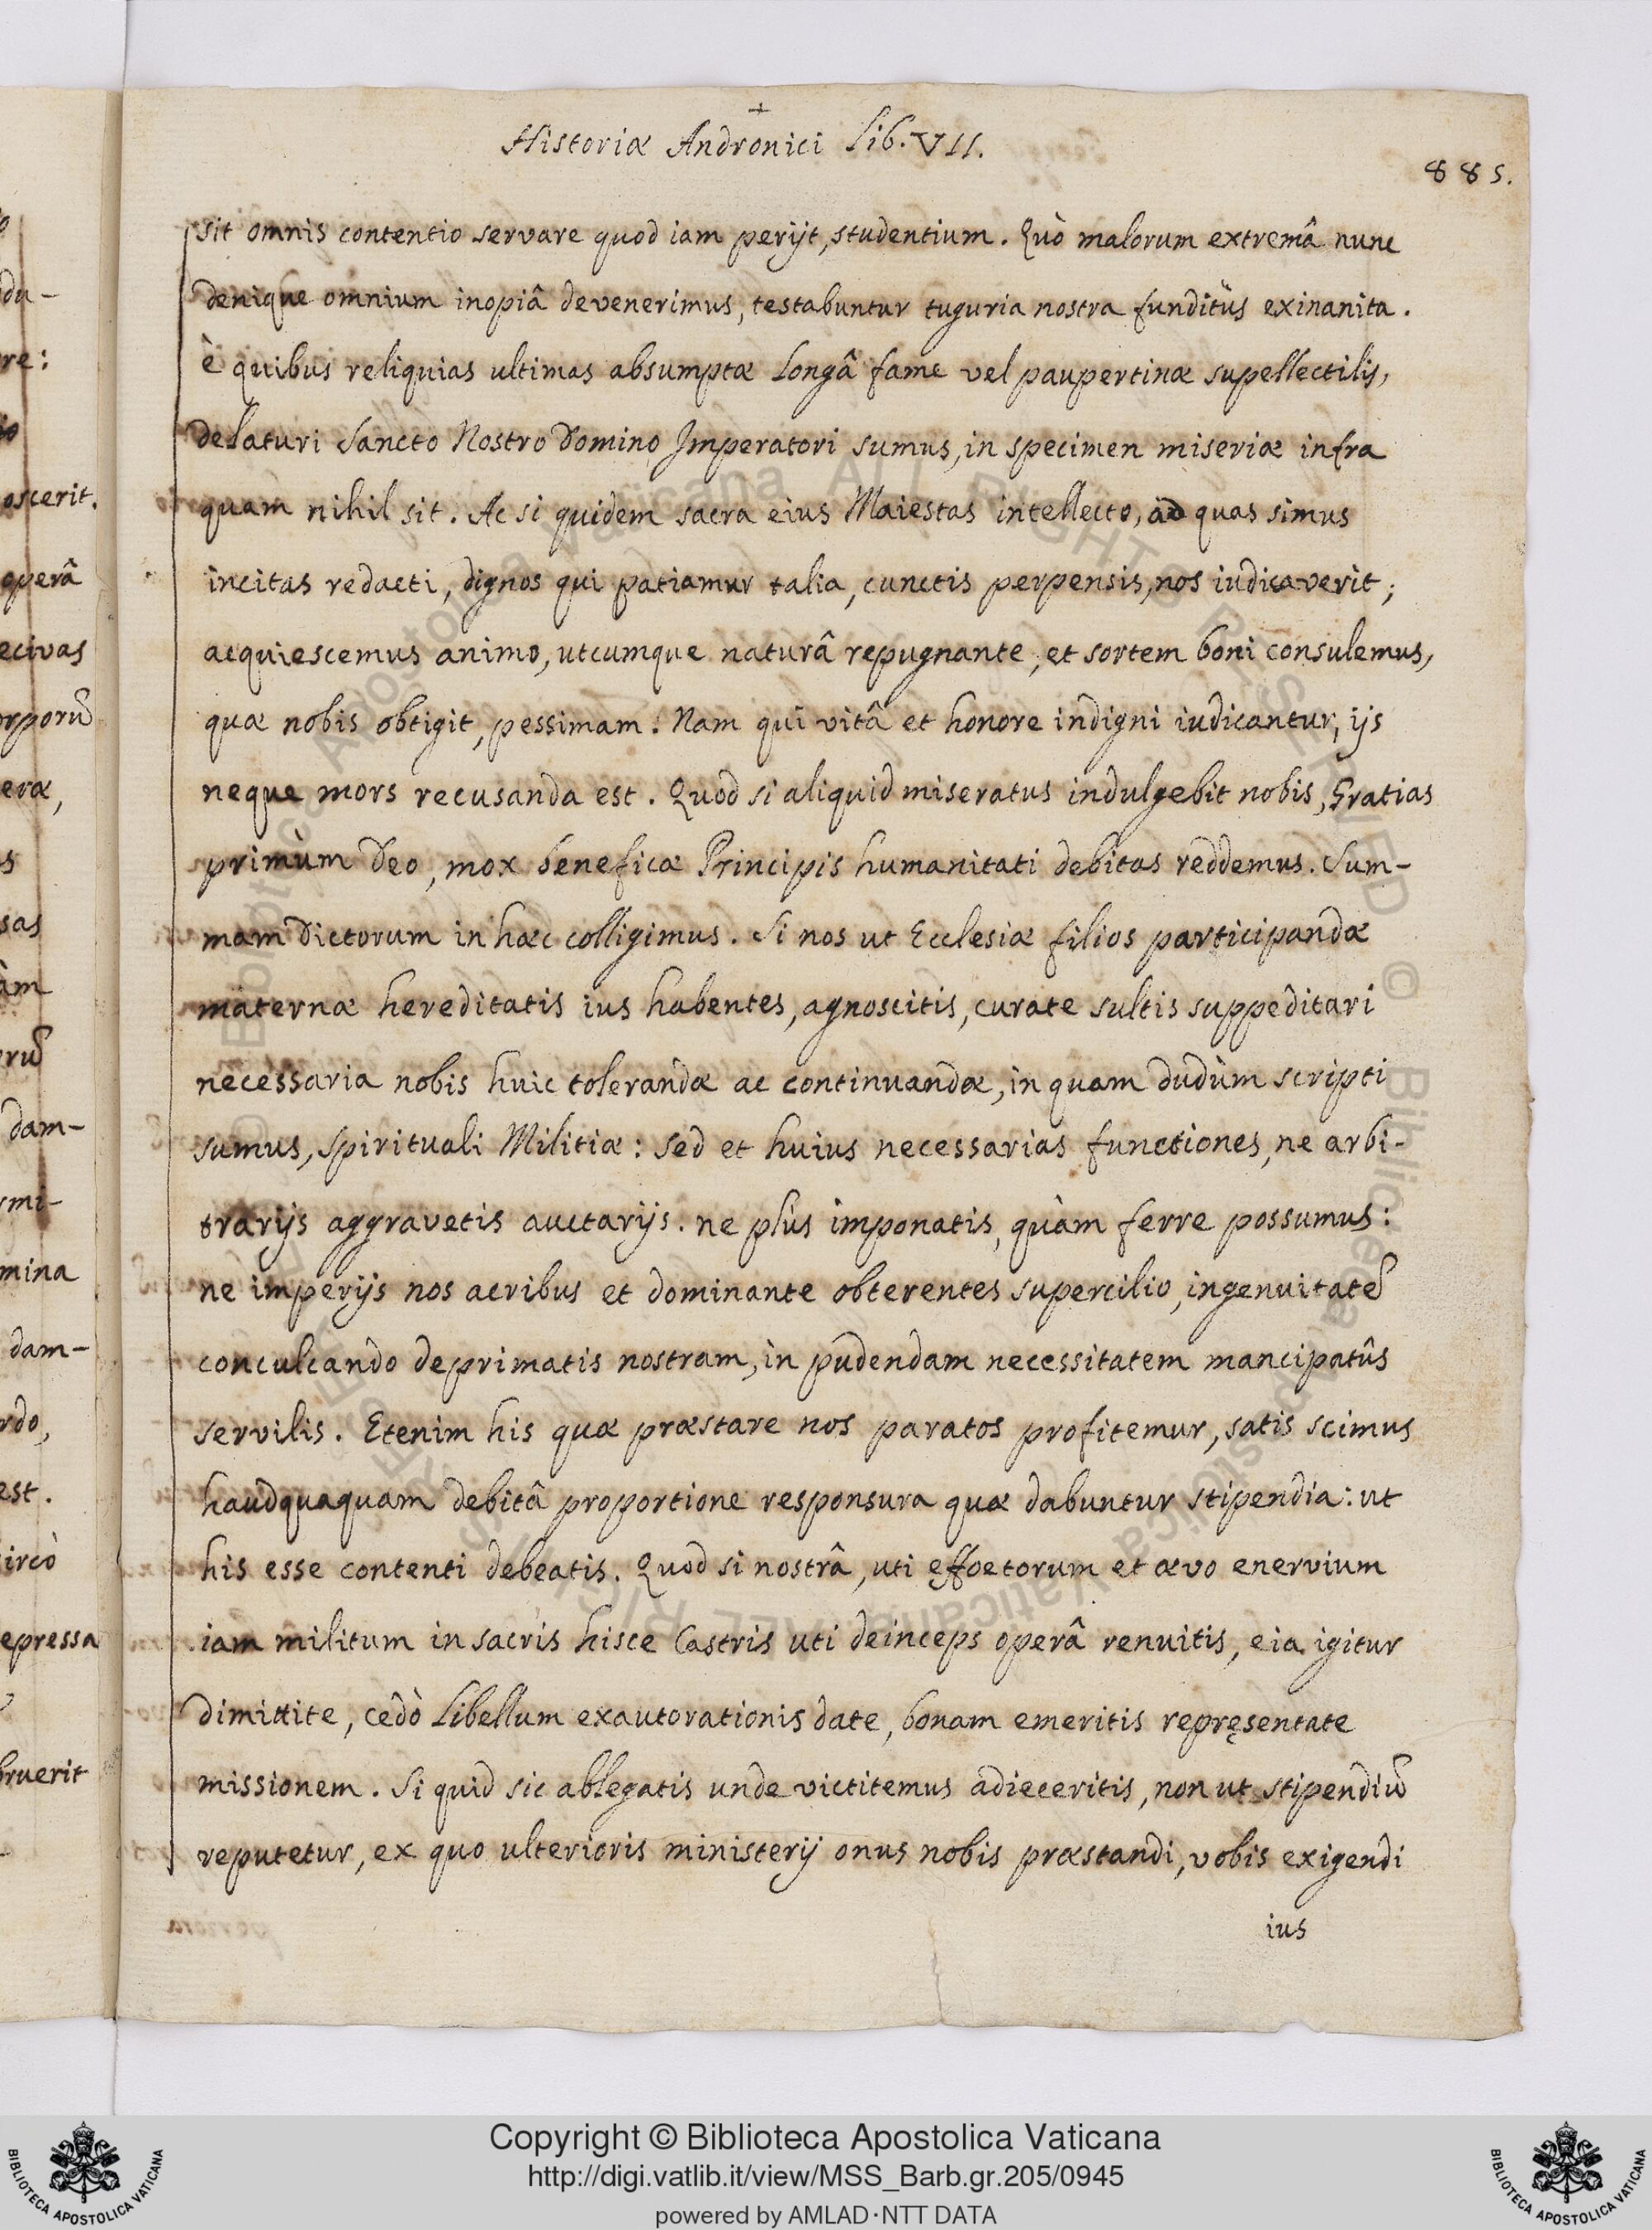 Historiæ Andronici Lib. VII.
885.
sit omnis contentio servare quod iam perijt, studentium. Quò malorum extremâ nunc
denique omnium inopiâ devenerimus, testabuntur tuguria nostra funditùs exinanita.
è quibus reliquias ultimas absumptæ longâ fame vel paupertinæ supellectilis,
delaturi Sancto Nostro Domino Imperatori sumus, in specimen miseriæ infra
quam nihil sit. Ac si quidem sacra eius Maiestas intellecto, ad quas simus
incitas redacti, dignos qui patiamur talia, cunctis perpensis, nos iudicaverit;
acquiescemus animo, utcumque naturâ repugnante, et sortem boni consulemus,
quæ nobis obtigit, pessimam. Nam qui vitâ et honore indigni iudicantur, ijs
neque mors recusanda est. Quod si aliquid miseratus indulgebit nobis, Gratias
primùm Deo, mox beneficæ Principis humanitati debitas reddemus. Sum-
mam dictorum in hæc colligimus. Si nos ut Ecclesiæ filios participandæ
maternæ hereditatis ius habentes, agnoscitis, curate sultis suppeditari
necessaria nobis huic tolerandæ ac continuandæ, in quam dudùm scripti
sumus, Spirituali Militiæ: sed et huius necessarias functiones, ne arbi-
trarijs aggravetis auctarijs. ne plùs imponatis, quàm ferre possumus:
ne imperijs nos acribus et dominante obterentes supercilio, ingenuitatẽ
conculcando deprimatis nostram, in pudendam necessitatem mancipatûs
servilis. Etenim his quæ præstare nos paratos profitemur, satis scimus
haudquaquam debitâ proportione responsura quæ dabuntur stipendia: ut
his esse contenti debeatis. Quod si nostrâ, uti effoetorum et ævo enervium
iam militum in sacris hisce Castris uti deinceps operâ renuitis, eia igitur
dimittite, cedò Libellum exautorationis date, bonam emeritis repręsentate
missionem. Si quid sic ablegatis unde victitemus adieceritis, non ut stipendiũ
reputetur, ex quo ulterioris ministerij onus nobis præstandi, vobis exigendi
ius
Copyright © Biblioteca Apostolica Vaticana
http://digi.vatlib.it/view/MSS_Barb.gr.205/0945
powered by AMLAD·NTT DATA